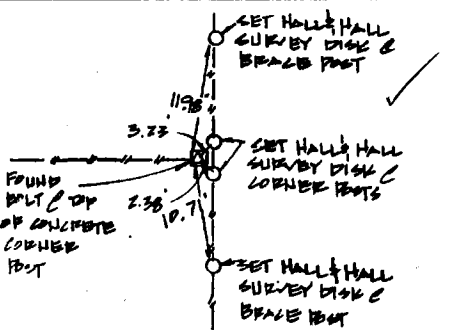 SET HALL & HALL
SURVEY DISK @
BRACE POST
11.98'
3.23'
SET HALL & HALL
SURVEY DISK @
CORNER POSTS
FOUND
BOLT @ TOP
OF CONCRETE
CORNER
POST
2.38'
10.71'
SET HALL & HALL
SURVEY DISK @
BRACE POST